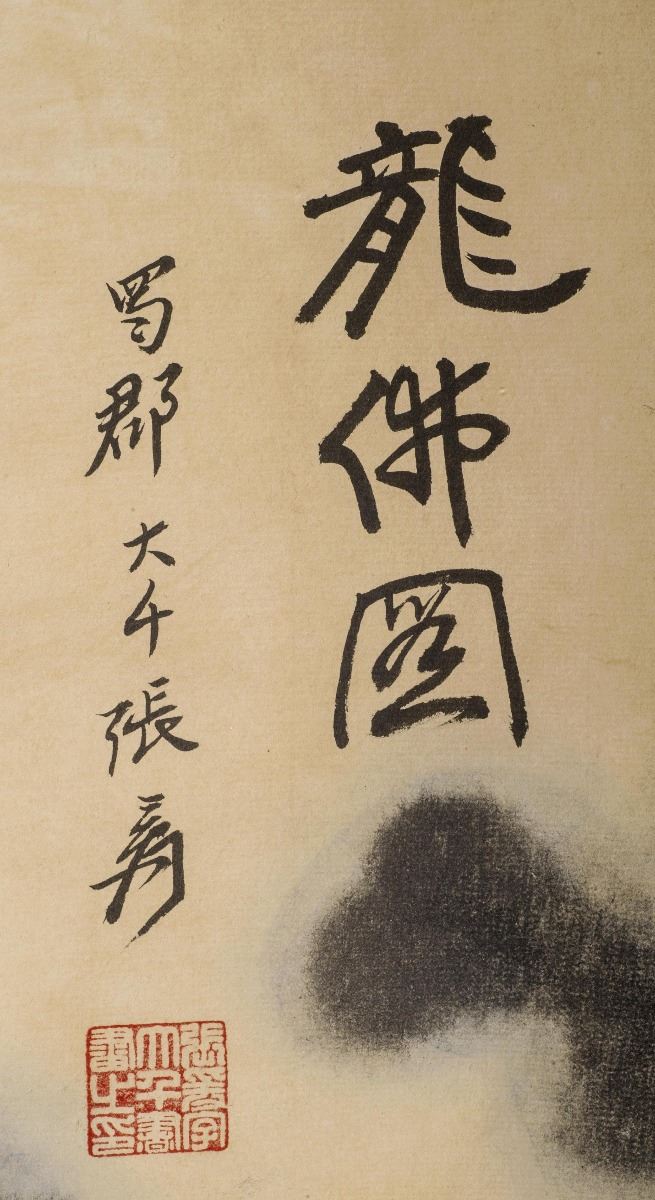 龍佛圖
蜀郡大千張爰
張爰字
大千書
畫之印